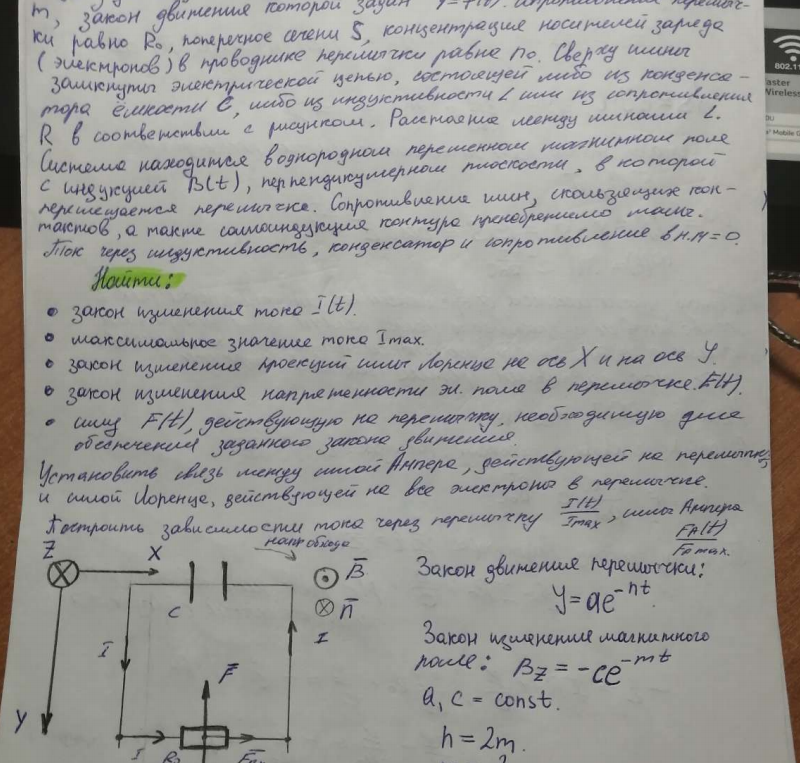 m, закон движения которой задан y=f(t). Сопротивление перемыч-
ки равно R₀, поперечное сечени S, концентрация носителей заряда
(электронов) в проводнике перемычки равна n₀. Сверху шины
замкнуты электрической цепью, состоящей либо из конденса-
тора ёмкости C, либо из индуктивности L или из сопротивления
R в соответствии с рисунком. Расстояние между шинами L.
Система находится в однородном переменном магнитном поле
с индукцией B(t), перпендикулярном плоскости, в которой
перемещается перемычка. Сопротивление шин, скользящих кон-
тактов, а также самоиндукция контура пренебрежимо малы.
Ток через индуктивность, конденсатор и сопротивление в н.м=0.
Найти:
• закон изменения тока I(t).
• максимальное значение тока Imax.
• закон изменения проекций силы Лоренца на ось X и на ось Y.
• закон изменения напряженности эл. поля в перемычке E(t).
• силу F(t), действующую на перемычку, необходимую для
обеспечения заданного закона движения.
Установить связь между силой Ампера, действующей на перемычку
и силой Лоренца, действующей на все электроны в перемычке.
Построить зависимости тока через перемычку I(t)/Imax, силы Ампера
FA(t)/FAmax.
напр обхода
Z
X
C
B
n
I
I
F
Y
I
R₀
Закон движения перемычки:
y=ae^-nt
Закон изменения магнитного
поля: Bz = -ce^-mt
a, c = const.
n = 2m.